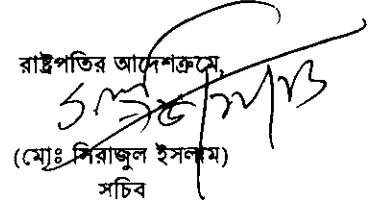 রাষ্ট্রপতির আদেশক্রমে,
(মোঃ সিরাজুল ইসলাম)
সচিব